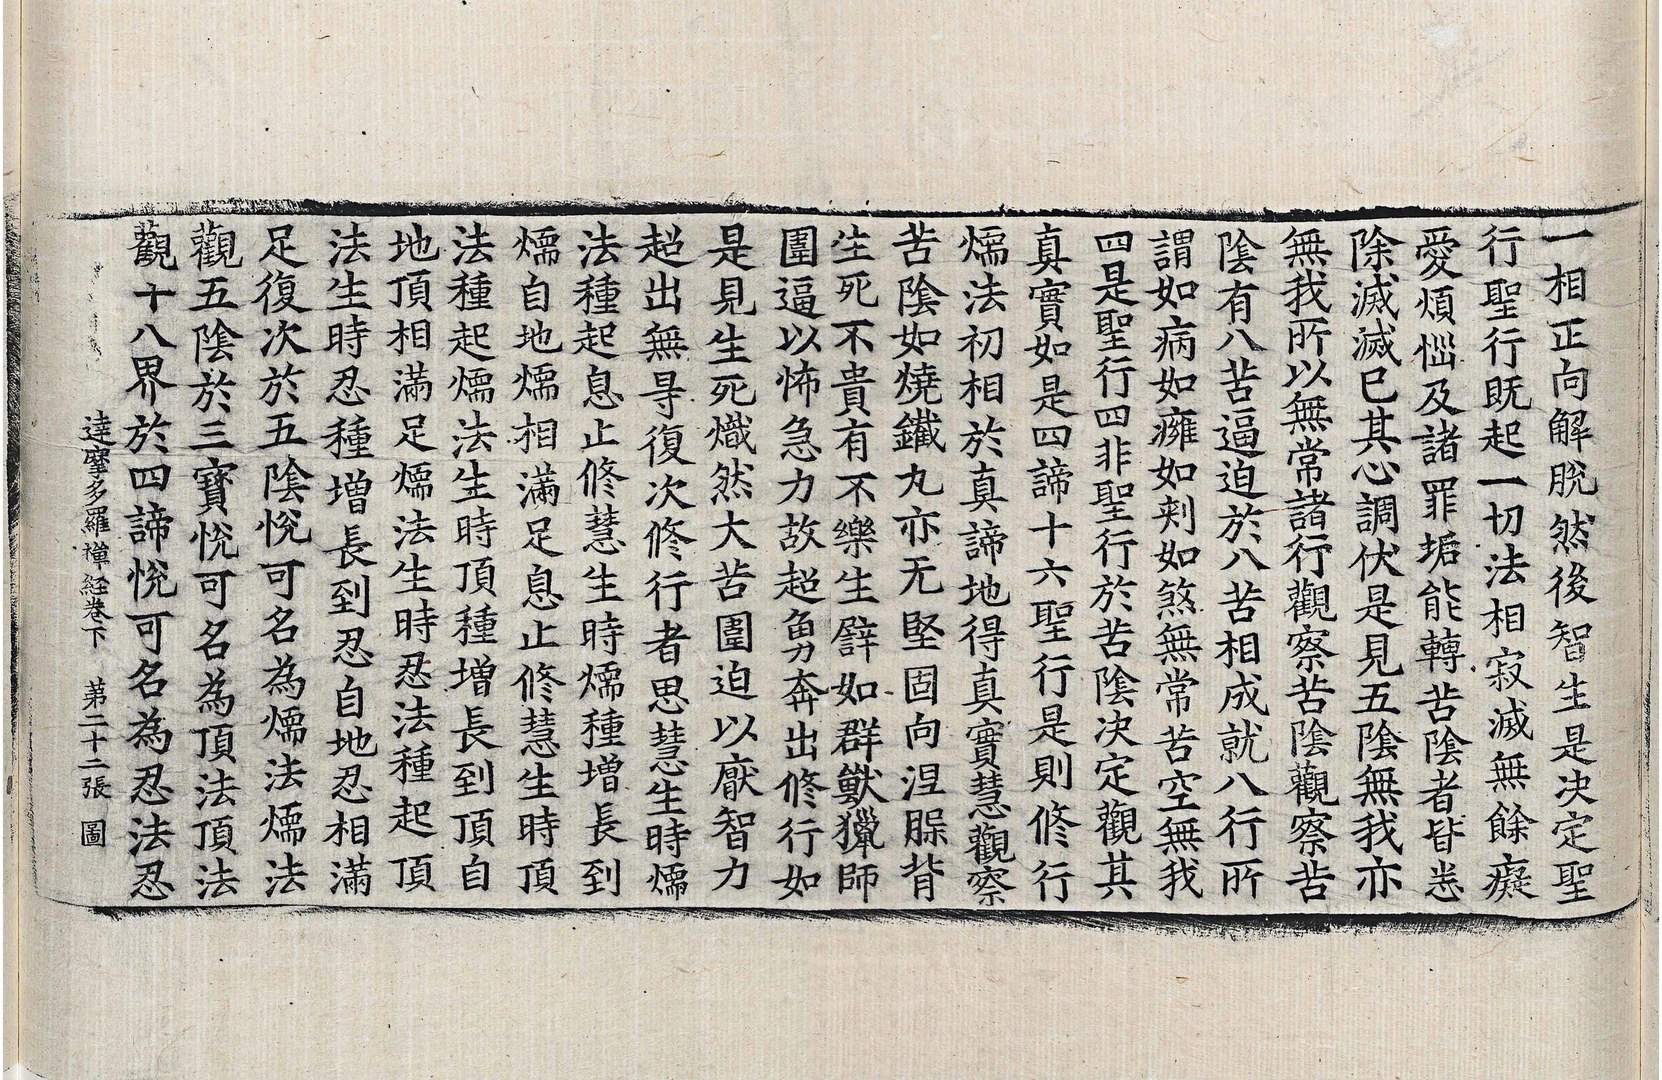 一相正向解脫然後智生是决定聖
行聖行旣起一切法相寂滅無餘癡
愛煩惱及諸罪垢能轉苦陰者皆悉
除滅滅已其心調伏是見五陰無我亦
無我所以無常諸行觀察苦陰觀察苦
陰有八苦逼迫於八苦相成就八行所
謂如病如癰如刾如煞無常苦空無我
四是聖行四非聖行於苦陰决定觀其
真實如是四諦十六聖行是則修行
煗法初相於真諦地得真實慧觀察
苦陰如燒鐵丸亦无堅固向涅脲背
生死不貴有不樂生譬如群獸獵師
圍逼以怖急力故超勇奔出修行如
是見生死熾然大苦圍迫以厭智力
超出無㝵復次修行者思慧生時煗
法種起息止修慧生時煗種增長到
煗自地煗相滿足息止修慧生時頂
法種起煗法生時頂種增長到頂自
地頂相滿足煗法生時忍法種起頂
法生時忍種增長到忍自地忍相滿
足復次於五陰悅可名為煗法煗法
觀五陰於三寶悅可名為頂法頂法
觀十八界於四諦悅可名為忍法忍
達摩多羅禪経卷下 第二十二張 圖